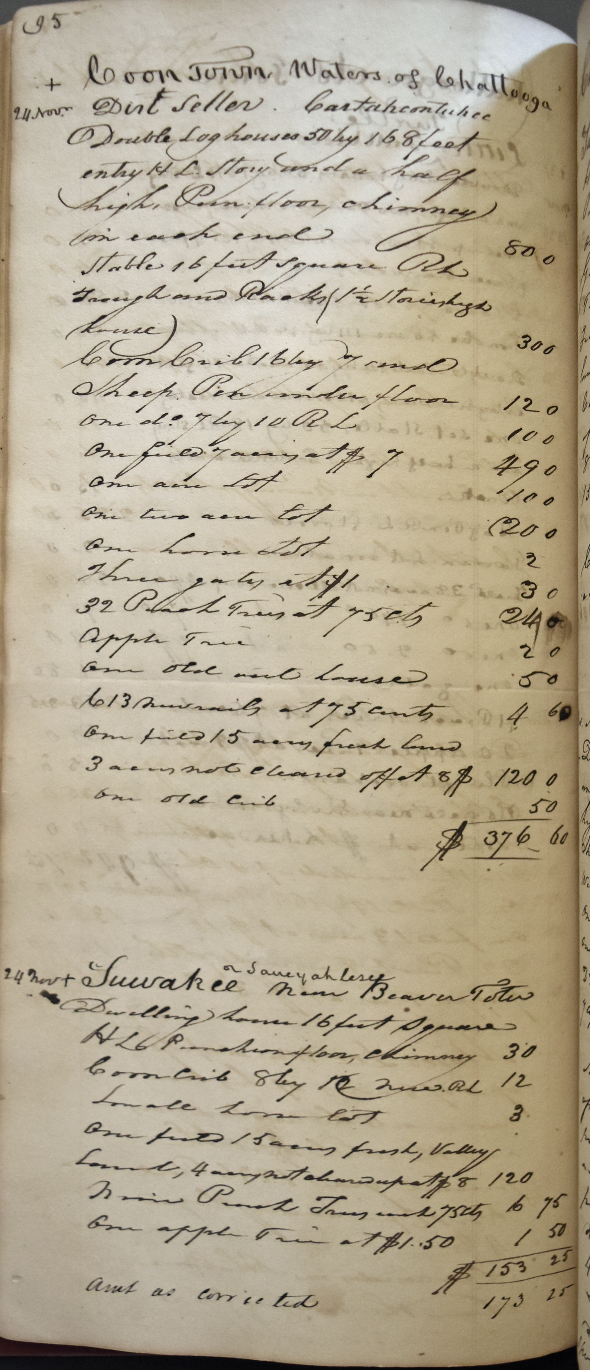 95
+ Coon Town Waters of Chattooga
24 Nov. Dirt Seller. Cartahcontuhee
Double Log houses 50 by 16 8 feet
entry H L Story and a half
high, Pun. floor, chimney
in each end 80 0
Stable 16 feet Square RL
Trough and Racks (1½ Stories high
house) 30 0
Corn Crib 16 by 7 and
Sheep Pen under floor 12 0
One do. 7 by 10 RL 10 0
One field 7 acres at $7 49 0
One acre Lot 10 0
One two acre Lot 20 0
One horse Lot 2
Three gates at $1 3 0
32 Peach Trees at 75 cts 24 0
Apple Tree 2 0
One old out house 5 0
613 new rails at 75 cents 4 60
One field 15 acres fresh land
3 acres not cleared off at 8$ 120 0
One old Crib 5 0
$ 376 60
or Saueyahlesee
24 Nov + Suwakee Near Beaver Toter
Dwelling house 16 feet Square
H L Puncheon floor, Chimney 30
Corn Crib 8 by 12 new RL 12
Small horse Lot 3
One field 15 acres fresh, Valley
Land, 4 acres not cleared up at $8 120
Nine Peach Trees each 75 cts 6 75
One apple Tree at $1.50 1 50
$ 153 25
Amt as corrected 173 25